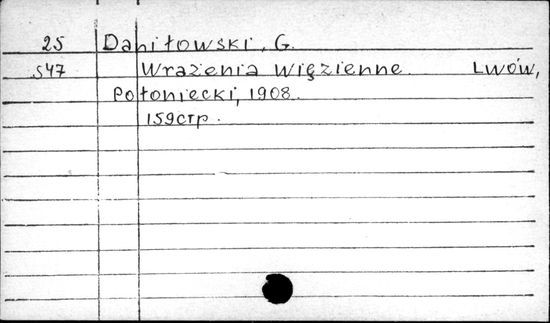 25 Daniłowski, G.
S47 Wrażenia więzienne. Lwów,
Połoniecki, 1908.
159стр.